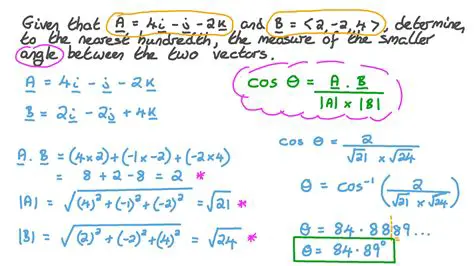 Given that A = 4i - j - 2k and B = <2, -2, 4>, determine,
to the nearest hundredth, the measure of the smaller
angle between the two vectors.
A = 4i - j - 2k
B = 2i - 2j + 4k
cos θ = A . B / |A| × |B|
A . B = (4×2) + (-1×-2) + (-2×4)
= 8 + 2 - 8 = 2 *
|A| = √((4)² + (-1)² + (-2)²) = √21 *
|B| = √((2)² + (-2)² + (4)²) = √24 *
cos θ = 2 / √21 × √24
θ = cos⁻¹ (2 / √21 × √24)
θ = 84.8889...
θ = 84.89°